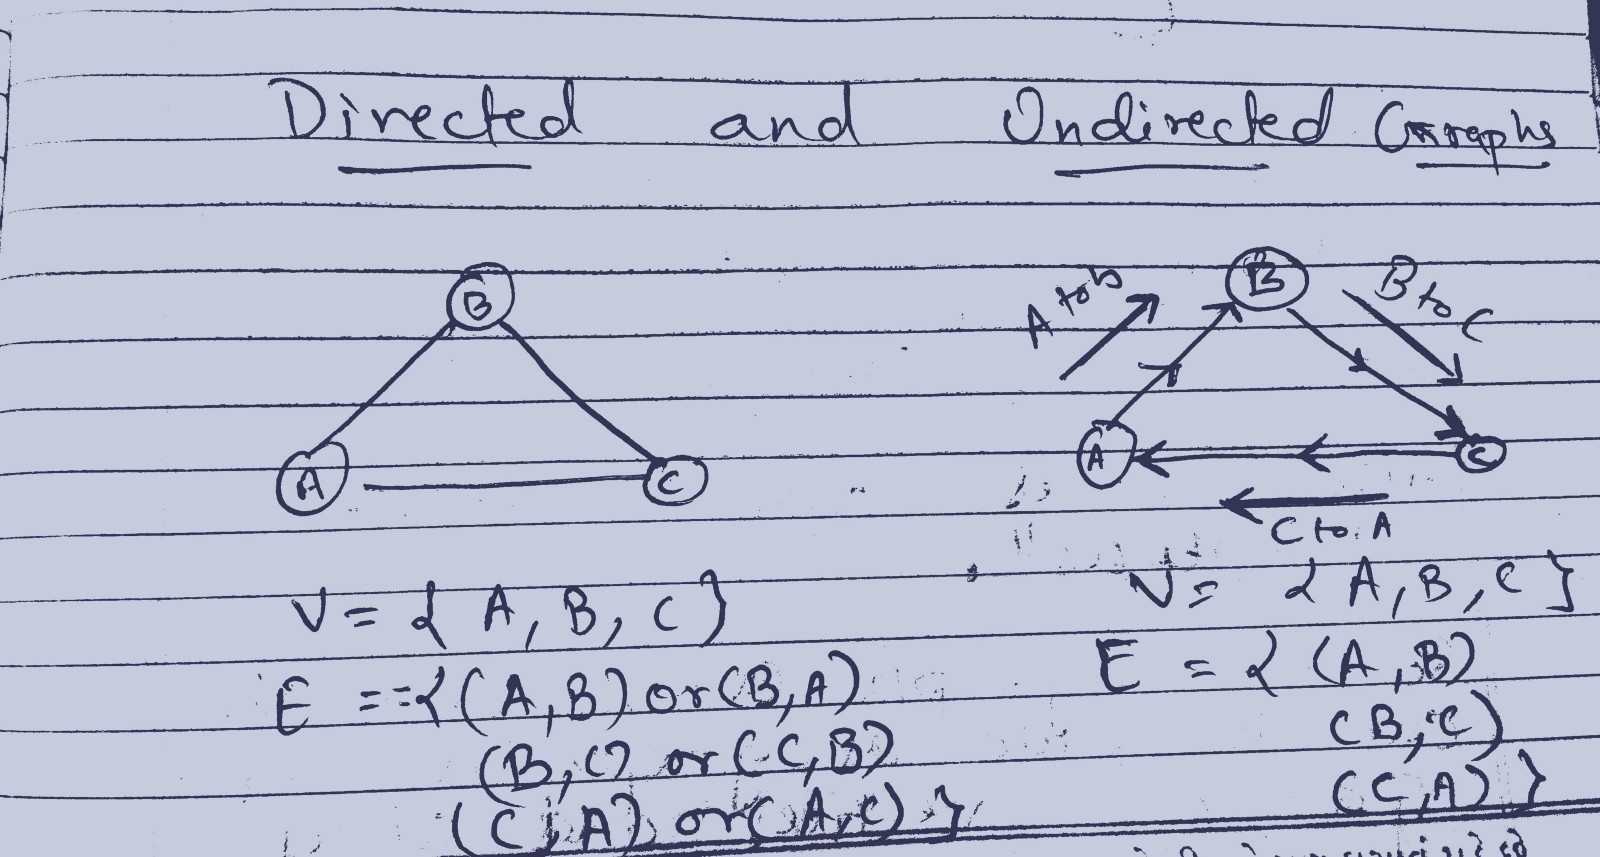 Directed and Undirected Graphs
B
A
C
A to b
B
B to C
A
C
C to A
V = { A, B, C }
E = = { (A,B) or (B,A)
(B,C) or (C,B)
(C,A) or (A,C) }
V = { A, B, C }
E = { (A,B)
(B,C)
(C,A) }